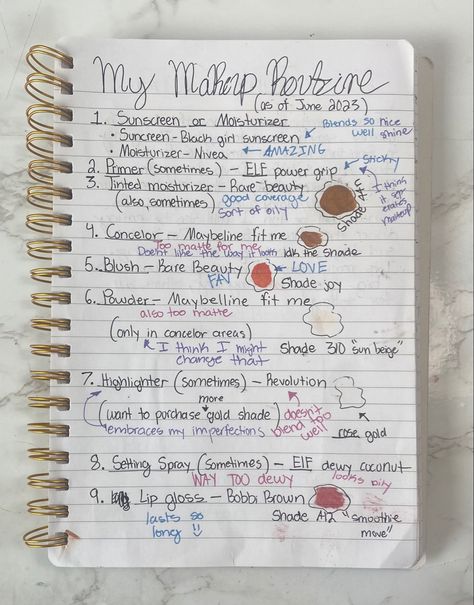 My Makeup Routine
(as of June 2023)
1. Sunscreen or Moisturizer
Blends so nice
well shine
• Suncreen - Black girl sunscreen
• Moisturizer - Nivea
AMAZING
2. Primer (sometimes) - ELF power grip
sticky
I think
it
makeup
3. Tinted mosturizer - Rare beauty
(also, sometimes)
good coverage
sort of oily
Shade
4. Concelor - Maybeline fit me
Too matte for me
Doesnt like the way it looks
idk the shade
5. Blush - Rare Beauty
LOVE
FAV
Shade joy
6. Powder - Maybelline fit me
also too matte
(only in concelor areas)
I think I might
change that
Shade 310 "sun beige"
7. Highlighter (sometimes) - Revolution
more
(want to purchase gold shade)
doesn't
blend too
well
embraces my imperfections
rose gold
8. Setting Spray (sometimes) - ELF dewy coconut
WAY TOO dewy
looks oily
9. Lip gloss - Bobbi Brown
lasts so
long
Shade A12 "smoothie
move"